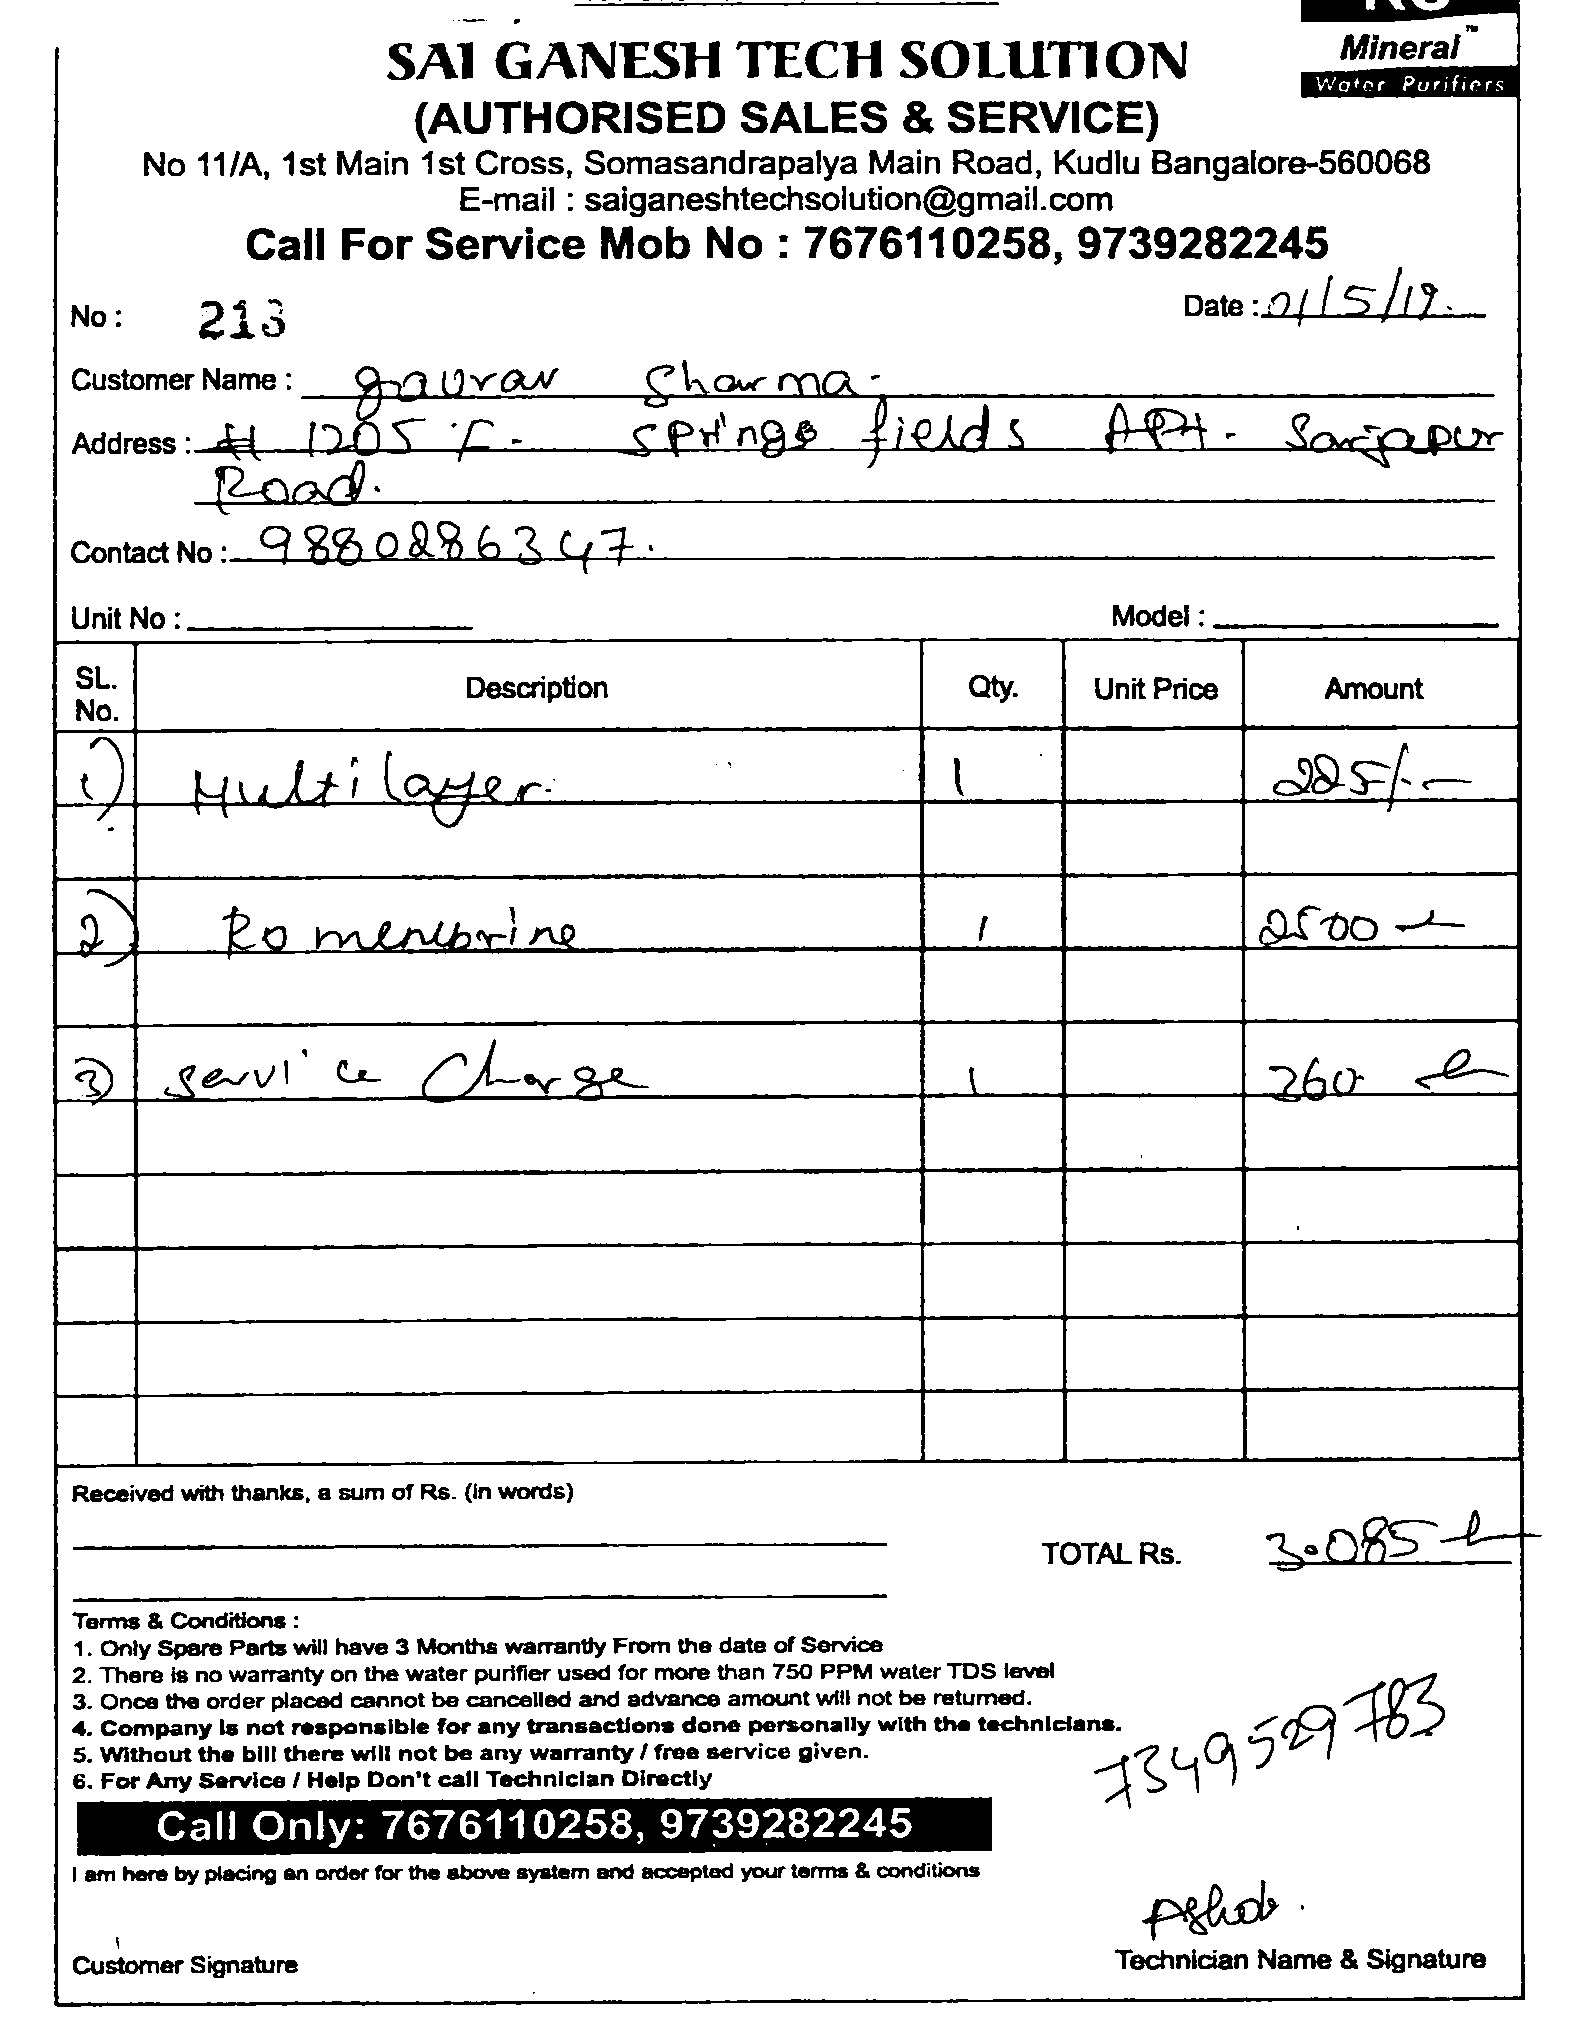 Mineral™
Water Purifiers
SAI GANESH TECH SOLUTION
(AUTHORISED SALES & SERVICE)
No 11/A, 1st Main 1st Cross, Somasandrapalya Main Road, Kudlu Bangalore-560068
E-mail : saiganeshtechsolution@gmail.com
Call For Service Mob No : 7676110258, 9739282245
No : 213 Date : 01/5/19.
Customer Name : gaurav Sharma.
Address : # 1205 F- springs fields APt. Sarjapur
Road.
Contact No : 9880286347.
Unit No : Model :
SL. No. Description Qty. Unit Price Amount
1) Multilayer. 1 225/-
2) Ro menebrine 1 2500
3) Service Charge 1 360
Received with thanks, a sum of Rs. (In words)
TOTAL Rs. 3.085
Terms & Conditions :
1. Only Spare Parts will have 3 Months warrantly From the date of Service
2. There is no warranty on the water purifier used for more than 750 PPM water TDS level
3. Once the order placed cannot be cancelled and advance amount will not be returned.
4. Company is not responsible for any transactions done personally with the technicians.
5. Without the bill there will not be any warranty / free service given.
6. For Any Service / Help Don't call Technician Directly
7349529783
Call Only: 7676110258, 9739282245
I am here by placing an order for the above system and accepted your terms & conditions
Customer Signature Technician Name & Signature